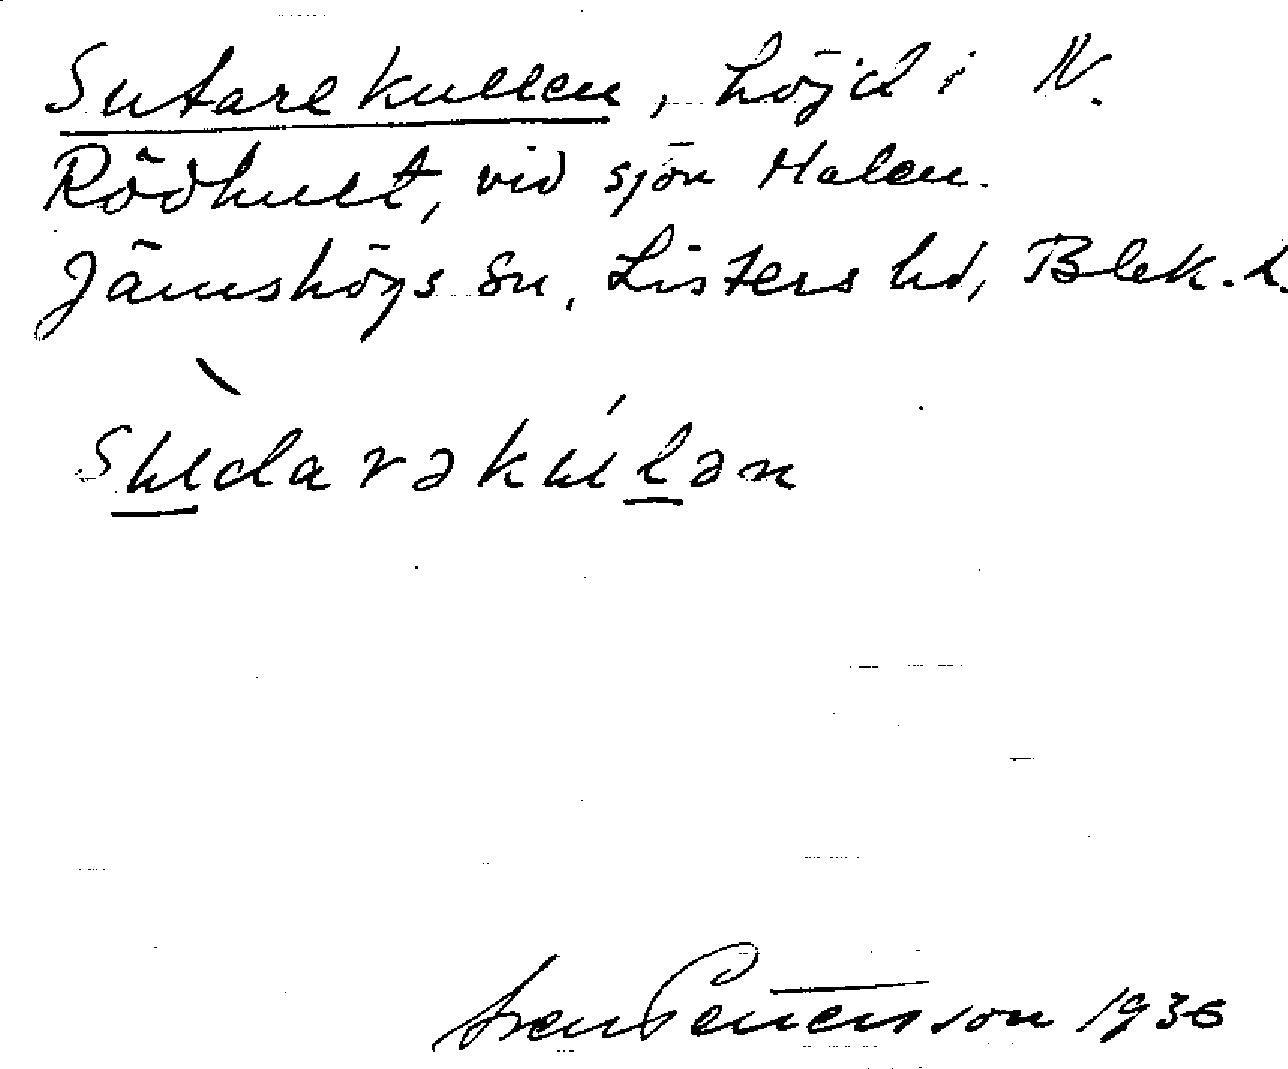 Sutarekullen, höjd i N.
Rödhult, vid sjön Halen.
Jämshögs sn, Listers hd, Blek. l.
sùdarəkúlən
Sven Pettersson 1936